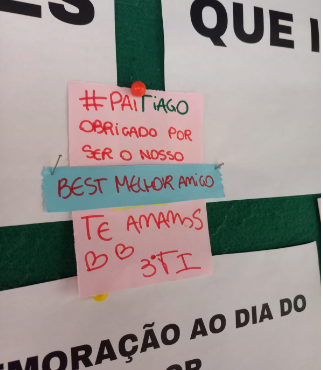 ES
QUE
#PAITIAGO
OBRIGADO POR
SER O NOSSO
BEST MELHOR AMIGO
TE AMAMOS
3ºTI
MORAÇÃO AO DIA DO
OR